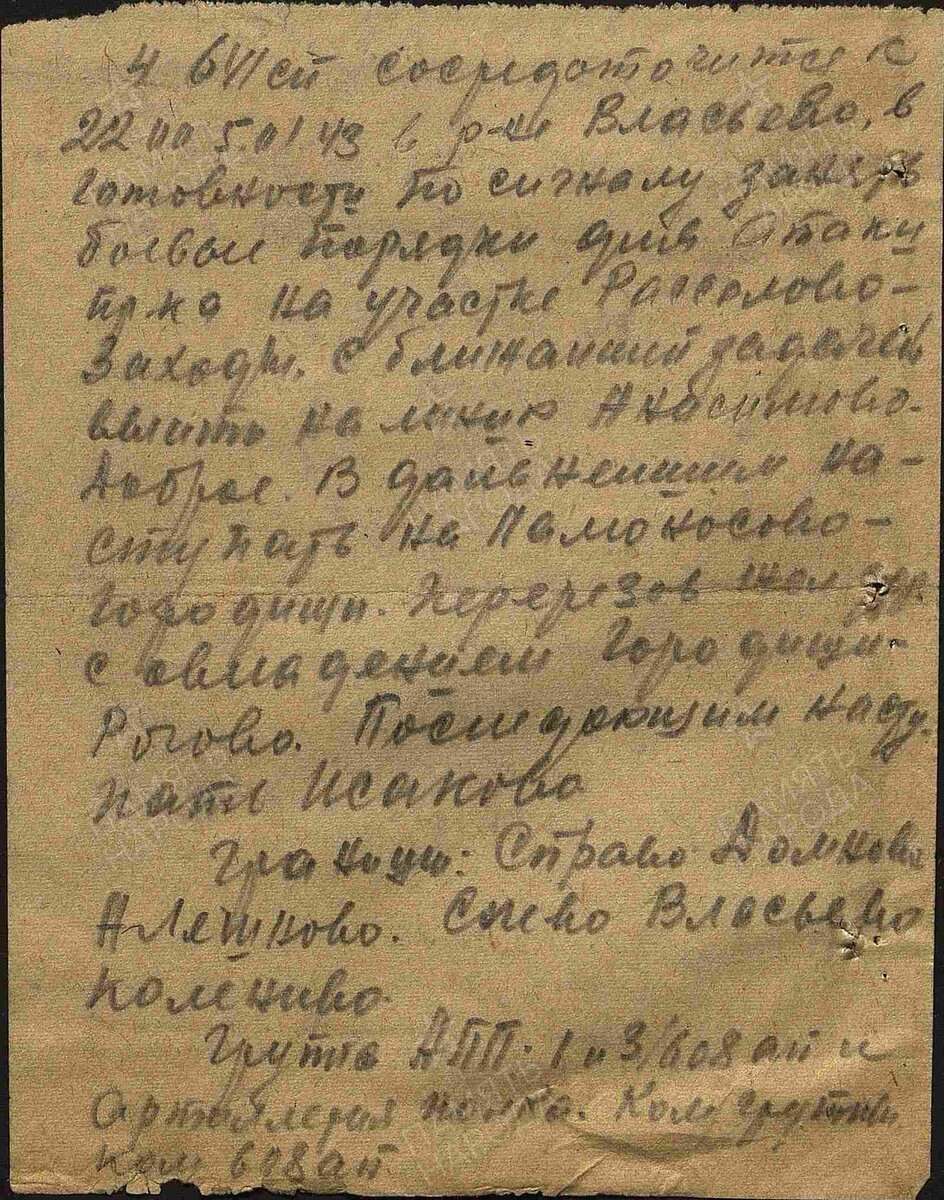 4 641 сп сосредоточится к
22 00 5.01 43 в р-не Власьево, в
готовности по сигналу занять
боевые порядки для атаки
пр-ка на участке Рассолово-
Заходы. С ближайшей задачей
выйти на линию Аносимово-
Доброе. В дальнейшем на-
ступать на Памоносово-
Городищи. Перерезов жел.
с овладением Городищи-
Рогово. Последующим насту-
пать Исаково
Границы: Справо Домново
Аляшково. Слево Власьево
Коленово
Группа АПП. 1 и 3/608 ап и
Артиллерия полка. Ком группы
ком 608 ап